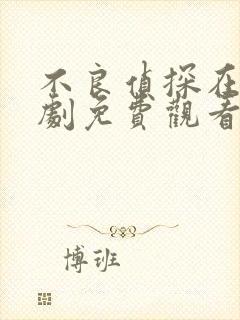 不良偵探在
劇免費觀看
博班